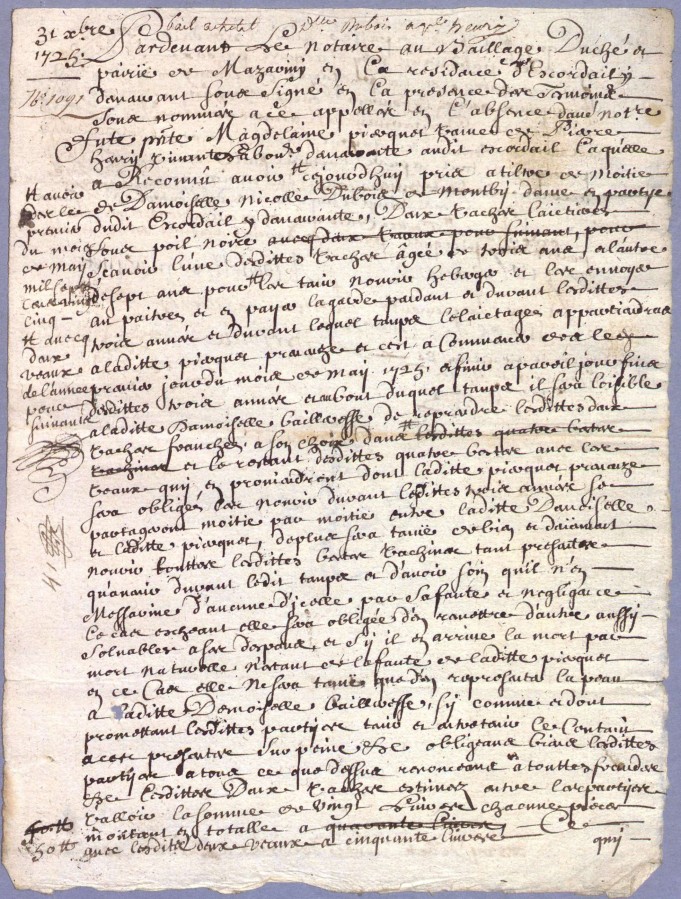 31 xbre
1725
bail a cheptel Dlle Dubois a vve henry
No 1091
Pardevant Le Notaire au Baillage Duché et
pairie de Mazariny En La residance d'Escordail y
demeurant sous signé En La presence des Temoins
sous nommés a ce appellés En l'absence d'aûe notre
fute pnte Magdelaine picquet vefve de Pierre
henry vivante labour demeurante audit escordail Laquelle
a Reconnû avoir ce jourd'huy pris a tiltre de Moitié
de Damoiselle Nicolle Dubois de Montby dame en partye
dudit Escordail y demeurante, Deux vaches laictieres
sous poil noire avecq deux veaux pour suivant, pour
scavoir l'une desdittes vaches âgée de trois ans, et l'autre
de sept ans pour les tenir nourir heberger et les envoyer
au paitres et en payer la garde pendant et durant lesdittes
trois années et durant lequel temps le laictages appartiendra
a laditte picquet preneuse et cest a commencé dès le
premier jour du mois de May 1725 et finir a pareil jour finie
lesdittes trois années et au bout duquel temps il sera loisible
a laditte Damoiselle bailleresse de reprendre lesdittes deux
vaches franches a son choix dans lesdittes quatre bestes
vachines et le restant desdittes quatre bestes avec les
veaux quy en proviendront dont laditte picquet preneuse
sera obligés les nourir durant lesdittes trois années se
partageront moitié par moitié entre laditte Damoiselle
et laditte picquet, deplus sera tenüe de bien et deüement
nourir touttes lesdittes bestes vachines tant presentes
qu'avenir durant ledit temps et d'avoir soin quil n'en
Messarive d'aucune d'icelle par sa faute et negligence
le cas escheant elle sera obligée d'en remettre d'autre aussy
solvables a ses despens, et sy il en arrive la mort par
mort naturelle n'estant de la faute de laditte picquet
en ce cas elle ne sera tenüe que d'en representer la peau
a laditte Demoiselle bailleresse, sy comme et dont
promettant lesdittes partyes tenir et entretenir le contenû
a ces presentes sur peine &c obligeans biens lesdittes
partyes a tous ce que dessus renonceans a touttes fraudes
&c Lesdittes Deux vaches estimés entre les partyes
valloir la somme de vingt Livres chacune pieces
montant en totalle a quarante Livres Ce
avec lesdits deux veaux a cinquante Livres quy
tt avoir
des le
premier
du mois
de May
mil sept
cens vingt
cinq
tt avec
deux
veaux
de l'année
pour
suivants
50 tt